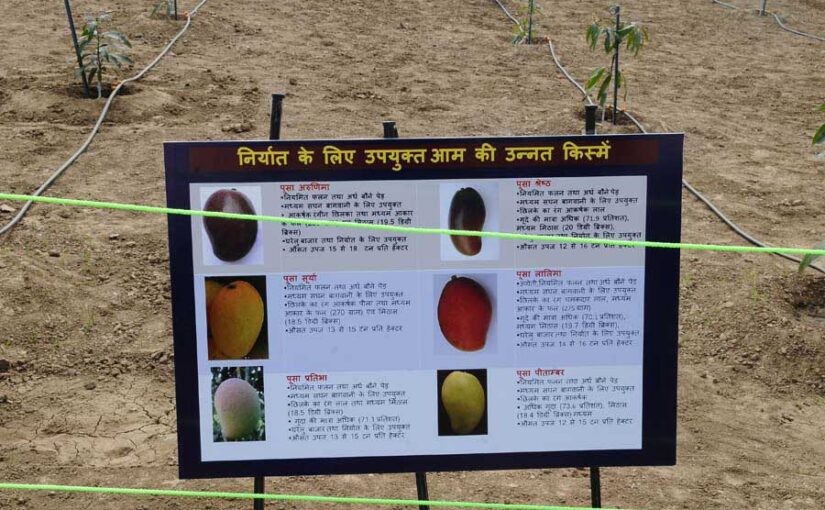 निर्यात के लिए उपयुक्त आम की उन्नत किस्में
पूसा अरुणिमा
•नियमित फलन तथा अर्ध बौने पेड़
•मध्यम सघन बागवानी के लिए उपयुक्त
•आकर्षक रंगीन छिलका तथा मध्यम आकार
(19.5 डिग्री
ब्रिक्स)
•घरेलू बाजार तथा निर्यात के लिए उपयुक्त
•औसत उपज 15 से 18 टन प्रति हेक्टर
पूसा श्रेष्ठ
•नियमित फलन तथा अर्ध बौने पेड़
•मध्यम सघन बागवानी के लिए उपयुक्त
•छिलके का रंग आकर्षक लाल
•गूदे की मात्रा अधिक (71.9 प्रतिशत),
मध्यम मिठास (20 डिग्री ब्रिक्स)
•औसत उपज 12 से 16 टन प्रति हेक्टर
पूसा सूर्या
•नियमित फलन तथा अर्ध बौने पेड़
•मध्यम सघन बागवानी के लिए उपयुक्त
•छिलके का रंग आकर्षक पीला तथा मध्यम
आकार के फल (270 ग्राम) एवं मिठास
(18.5 डिग्री ब्रिक्स)
•औसत उपज 13 से 15 टन प्रति हेक्टर
पूसा लालिमा
नियमित फलन तथा अर्ध बौने पेड़
•मध्यम सघन बागवानी के लिए उपयुक्त
•छिलके का रंग चमकदार लाल, मध्यम
आकार के फल
•गूदे की मात्रा अधिक (70.1 प्रतिशत),
मध्यम मिठास (19.7 डिग्री ब्रिक्स),
•घरेलू बाजार तथा निर्यात के लिए उपयुक्त
•औसत उपज 14 से 16 टन प्रति हेक्टर
पूसा प्रतिभा
•नियमित फलन तथा अर्ध बौने पेड़
•मध्यम सघन बागवानी के लिए उपयुक्त
•छिलके का रंग लाल तथा मध्यम मिठास
(18.5 डिग्री ब्रिक्स)
• गूदा की मात्रा अधिक (71.1 प्रतिशत)
•घरेलू बाजार तथा निर्यात के लिए उपयुक्त
•औसत उपज 13 से 15 टन प्रति हेक्टर
पूसा पीताम्बर
•नियमित फलन तथा अर्ध बौने पेड़
•मध्यम सघन बागवानी के लिए उपयुक्त
•छिलके का रंग आकर्षक
• अधिक गूदा (73.6 प्रतिशत), मिठास
(18.4 डिग्री ब्रिक्स) मध्यम
•औसत उपज 12 से 15 टन प्रति हेक्टर